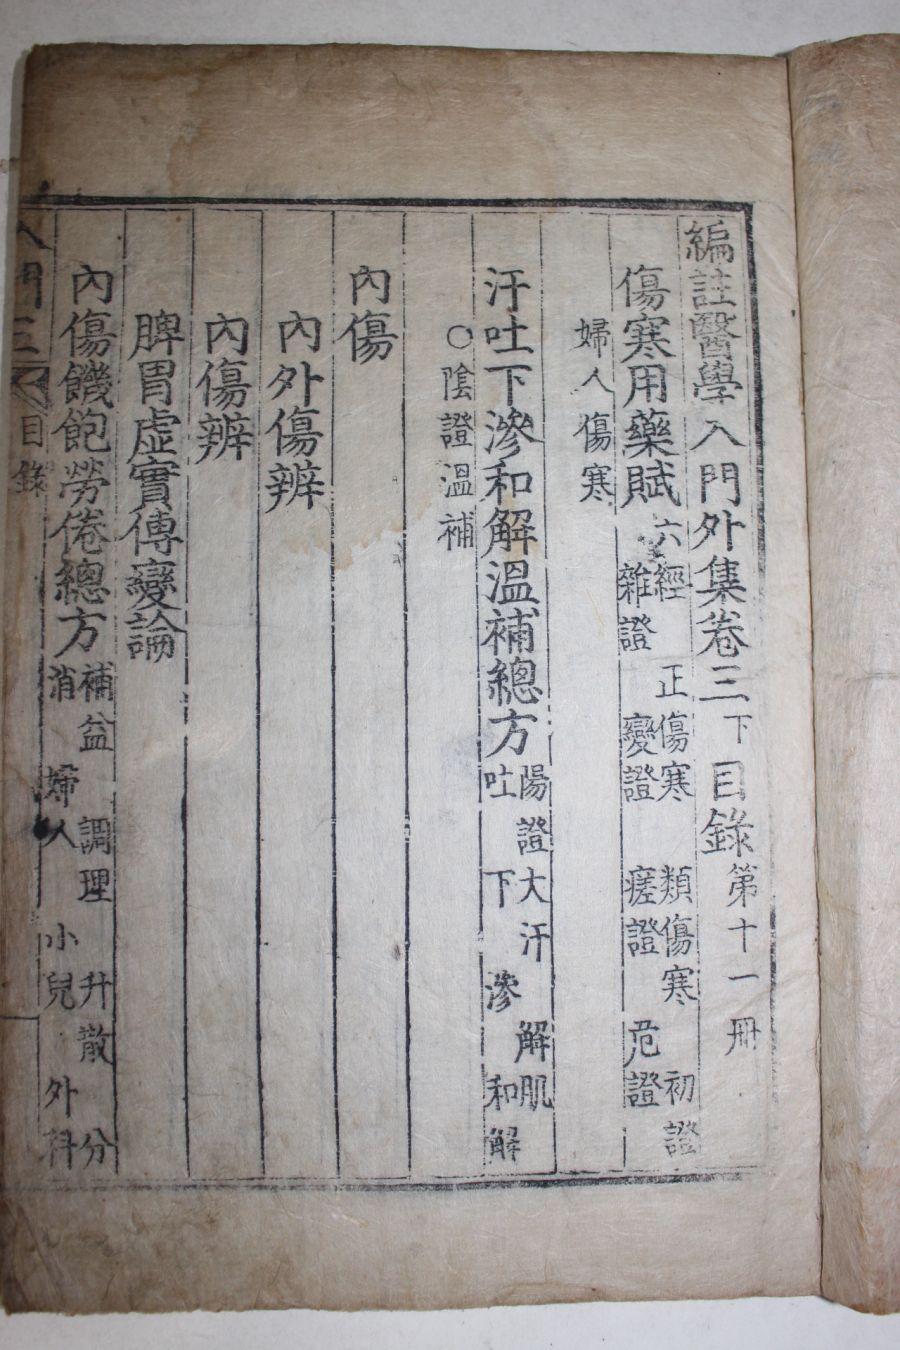 編註醫學入門外集卷三下目錄第十一冊
傷寒用藥賦 六經 正傷寒 類傷寒 初證
雜證 變證 瘥證 危證
婦人傷寒
汗吐下滲和解溫補總方 陽證大汗 解肌
吐 下 滲 和解
○陰證溫補
內傷
內外傷辨
內傷辨
脾胃虛實傳變論
內傷饑飽勞倦總方 補益 調理 升散 分
消 婦人 小兒 外科
入門三 目錄